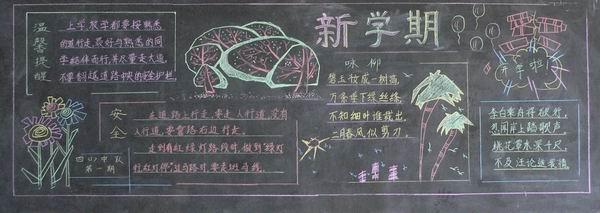 新学期
温馨提醒
上学放学都要按熟悉
的道行走,最好与熟悉的同
学结伴而行,并尽量走大道
不要翻越道路中央的安全护栏
安全
在道路上行走,要走人行道,没有
人行道,要靠路右边行走。
走到有红绿灯路段时,做到"绿灯
行红灯停"过马路时,要走斑马线。
四(1)中队
第一期
咏柳
碧玉妆成一树高
万条垂下绿丝绦
不知细叶谁裁出
二月春风似剪刀。
开学啦
李白乘舟将欲行,
忽闻岸上踏歌声
桃花潭水深千尺
不及汪伦送我情